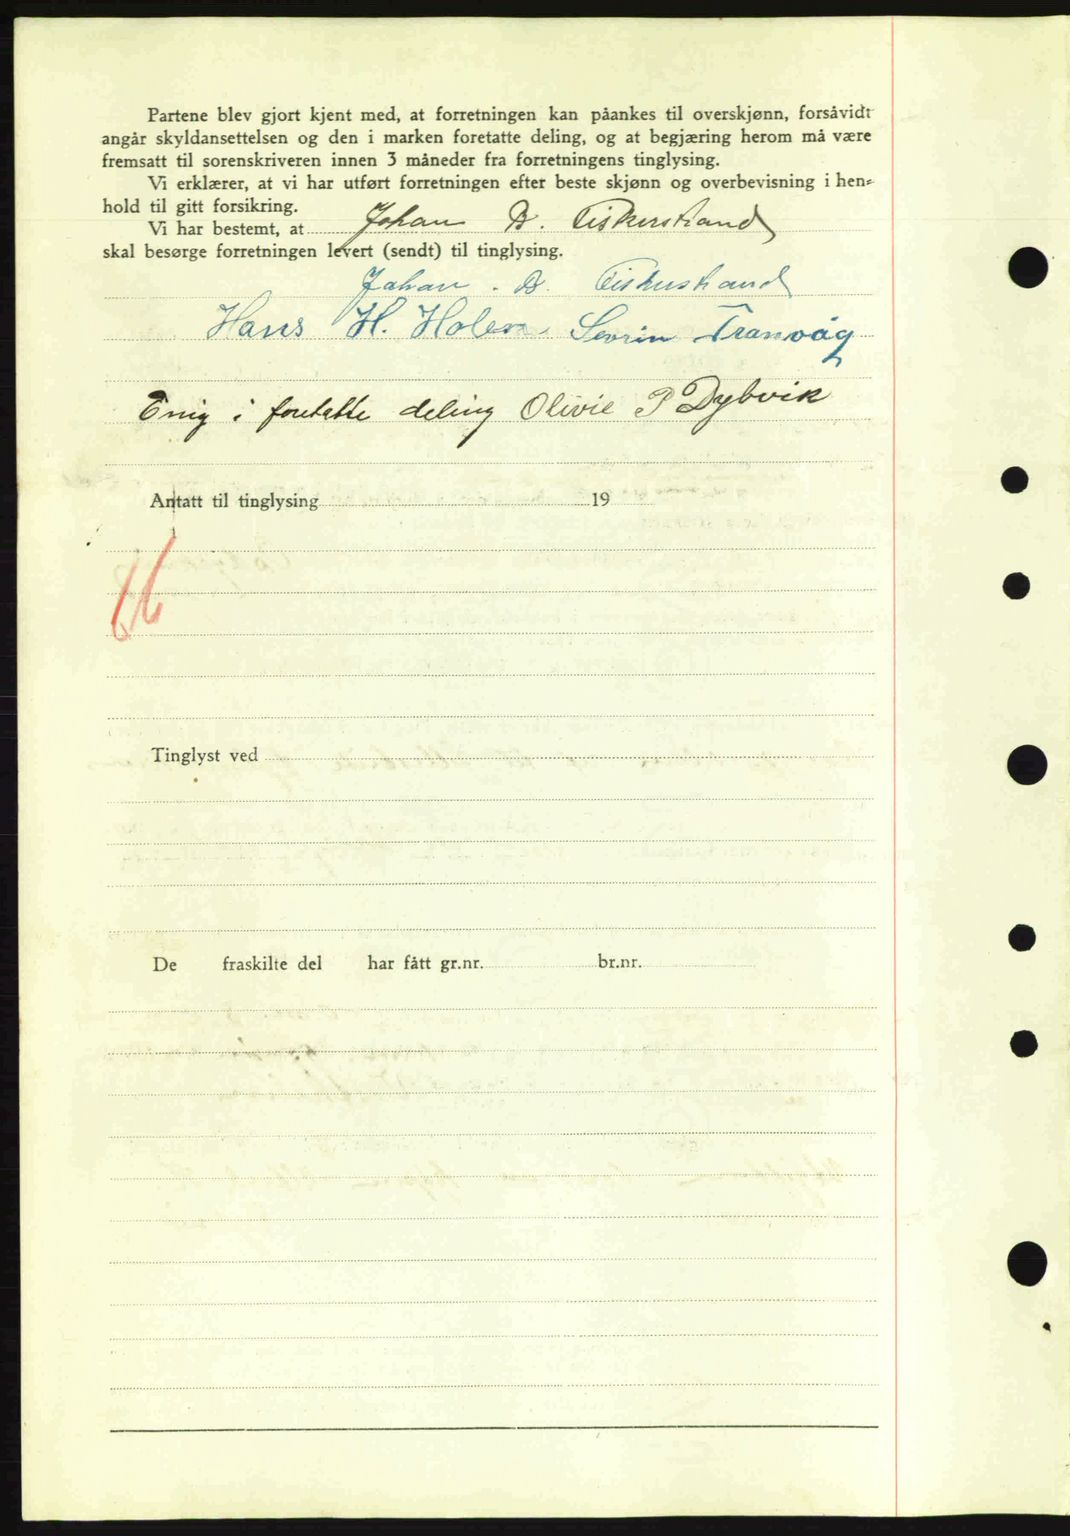 Partene blev gjort kjent med, at forretningen kan påankes til overskjønn, forsåvidt
angår skyldansettelsen og den i marken foretatte deling, og at begjæring herom må være
fremsatt til sorenskriveren innen 3 måneder fra forretningens tinglysing.
Vi erklærer, at vi har utført forretningen efter beste skjønn og overbevisning i hen-
hold til gitt forsikring.
Vi har bestemt, at Johan B. Fiskerstrand
skal besørge forretningen levert (sendt) til tinglysing.
Johan B. Fiskerstrand
Hans H. Holen Sevrin Tranvåg
Enig i foretatte deling Olivie P Dybvik
Antatt til tinglysing 19
66
Tinglyst ved
De fraskilte del har fått gr.nr. br.nr.